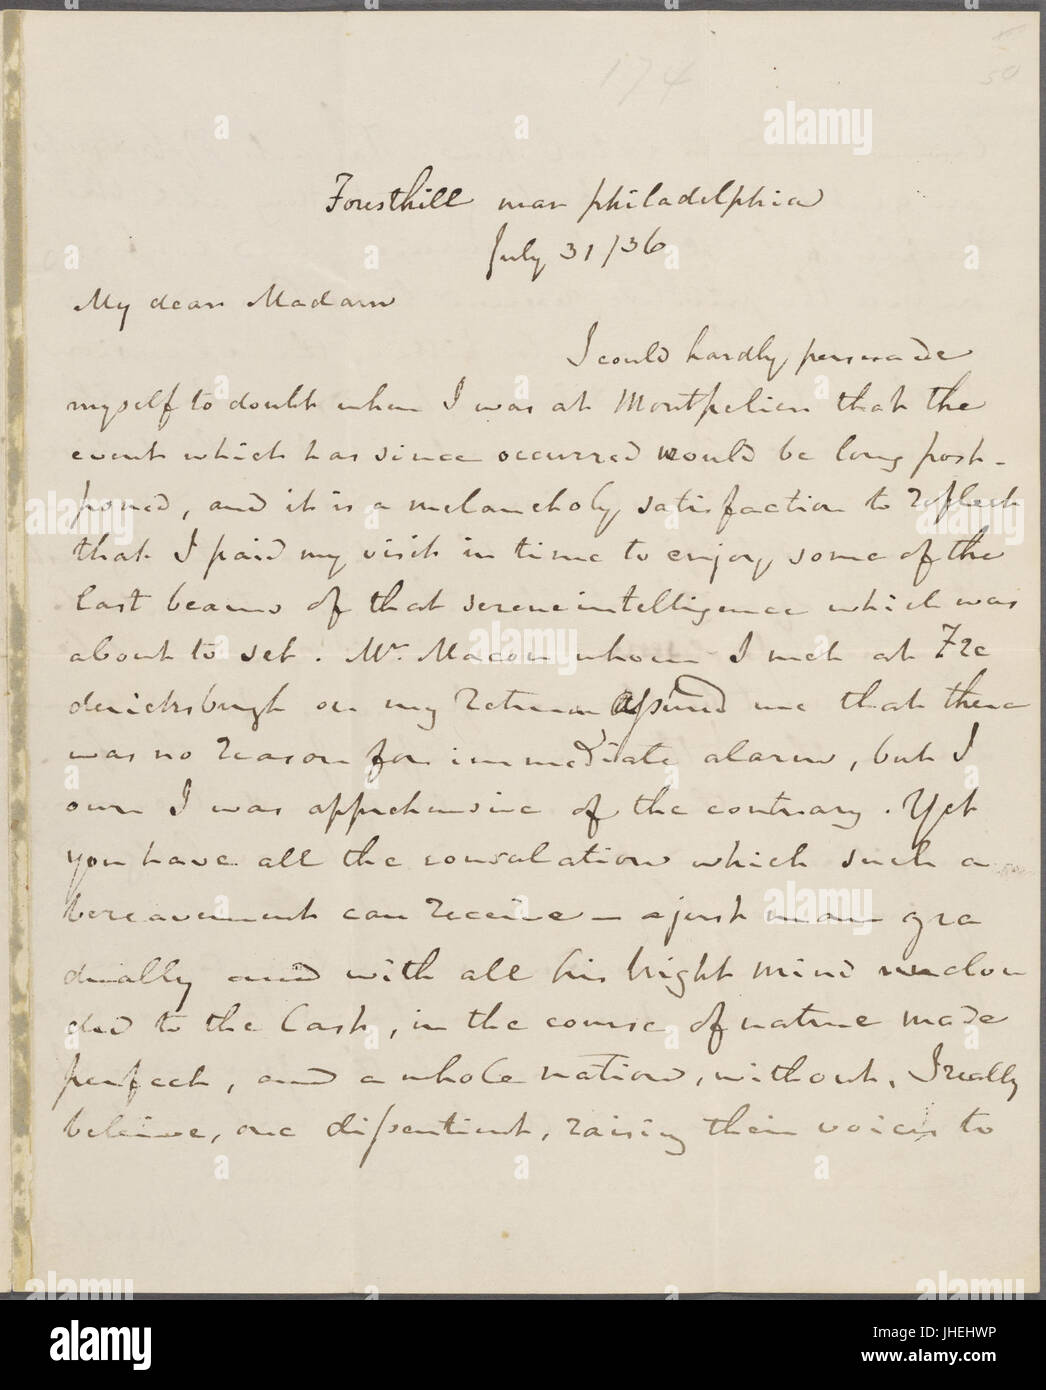 174
50
Foresthill near philadelphia
July 31/36
My dear Madam
I could hardly persuade
myself to doubt when I was at Montpelier that the
event which has since occurred would be long post-
poned, and it is a melancholy satisfaction to reflect
that I paid my visit in time to enjoy some of the
last beams of that serene intelligence which was
about to set. Mr. Macon whom I met at Fre
dericksburgh on my return assured me that there
was no reason for immediate alarm, but I
own I was apprehensive of the contrary. Yet
you have all the consolation which such a
bereavement can receive – a just man gra
dually and with all his bright mind unclou
ded to the last, in the course of nature made
perfect, and a whole nation, without, I really
beleive, one dissentient, raising their voices to
alamy
Image ID: JHEHWP
www.alamy.com